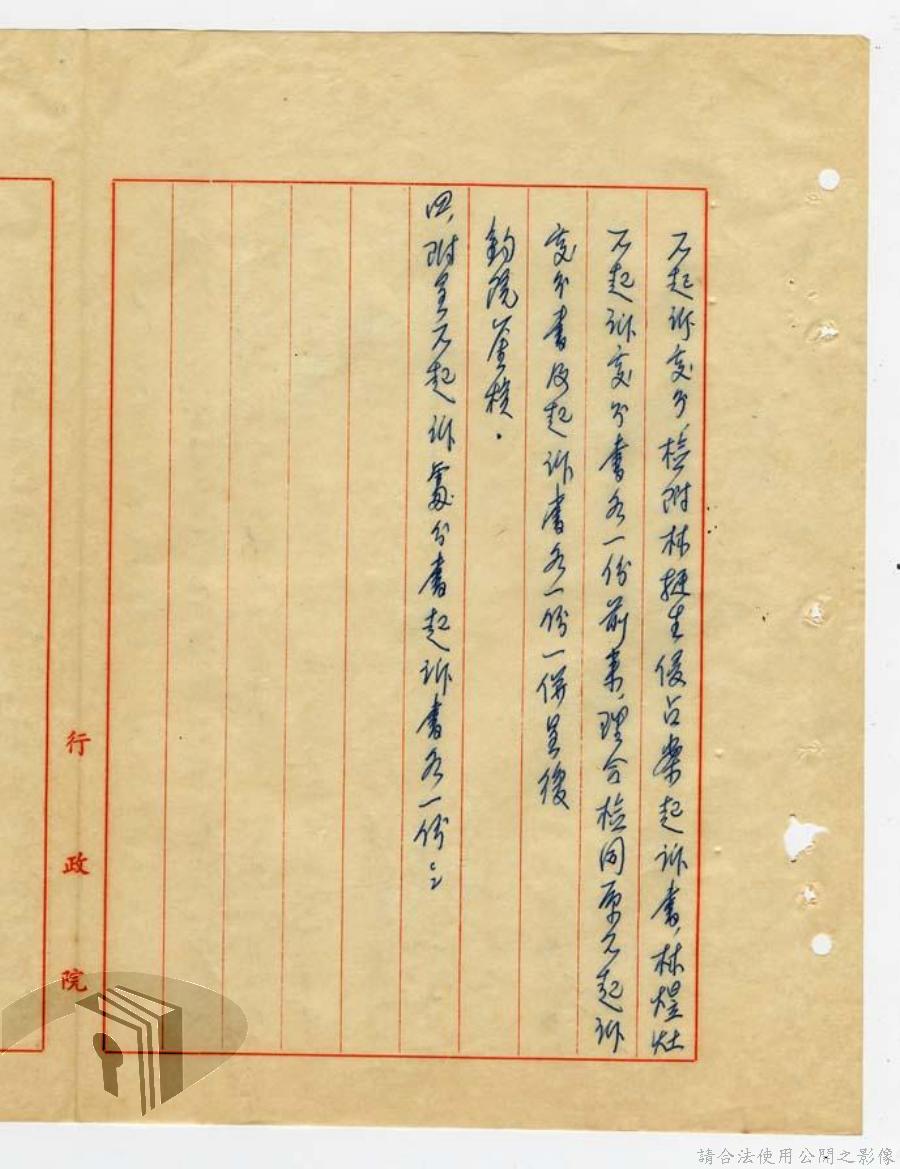 不起訴處分,檢附林挺生侵占案起訴書,林煜灶
不起訴處分書各一份前來,理合檢同原不起訴
處分書及起訴書各一份一併呈復
鈞院鑒核.
四、附呈不起訴處分書起訴書各一份:
行政院
請合法使用公開之影像